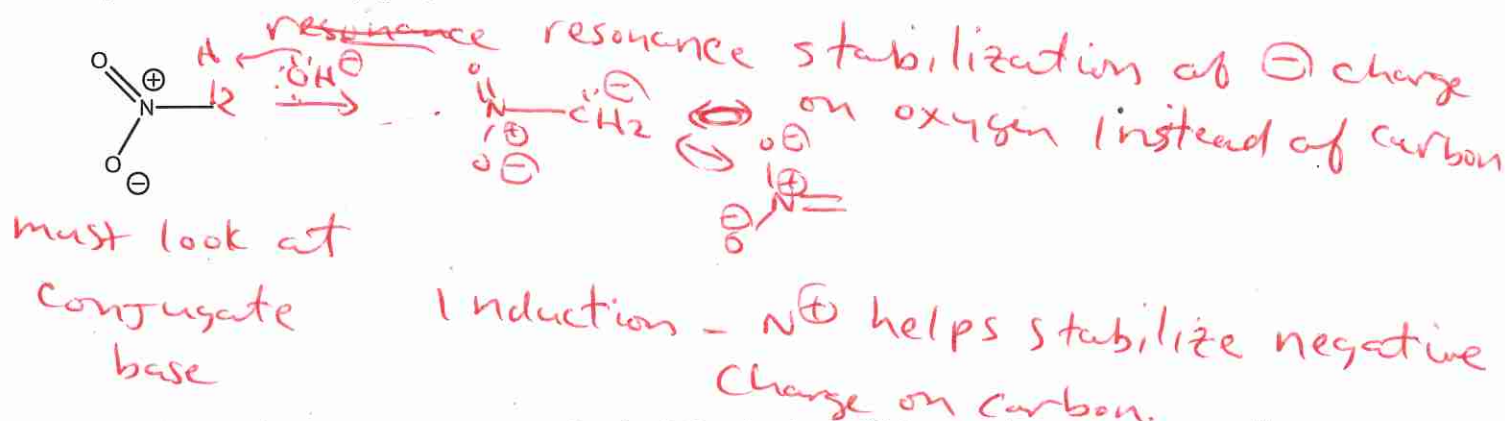 resonance resonance stabilization of ⊖ charge
on oxygen instead of carbon
O H :ÖH ⊖
⊕ N O ⊖
O N ⊕ O ⊖ C̈H2 ⊖ ↔
O ⊖ N ⊕ ⊖ O
must look at
conjugate
base
Induction - N⊕ helps stabilize negative
charge on carbon.